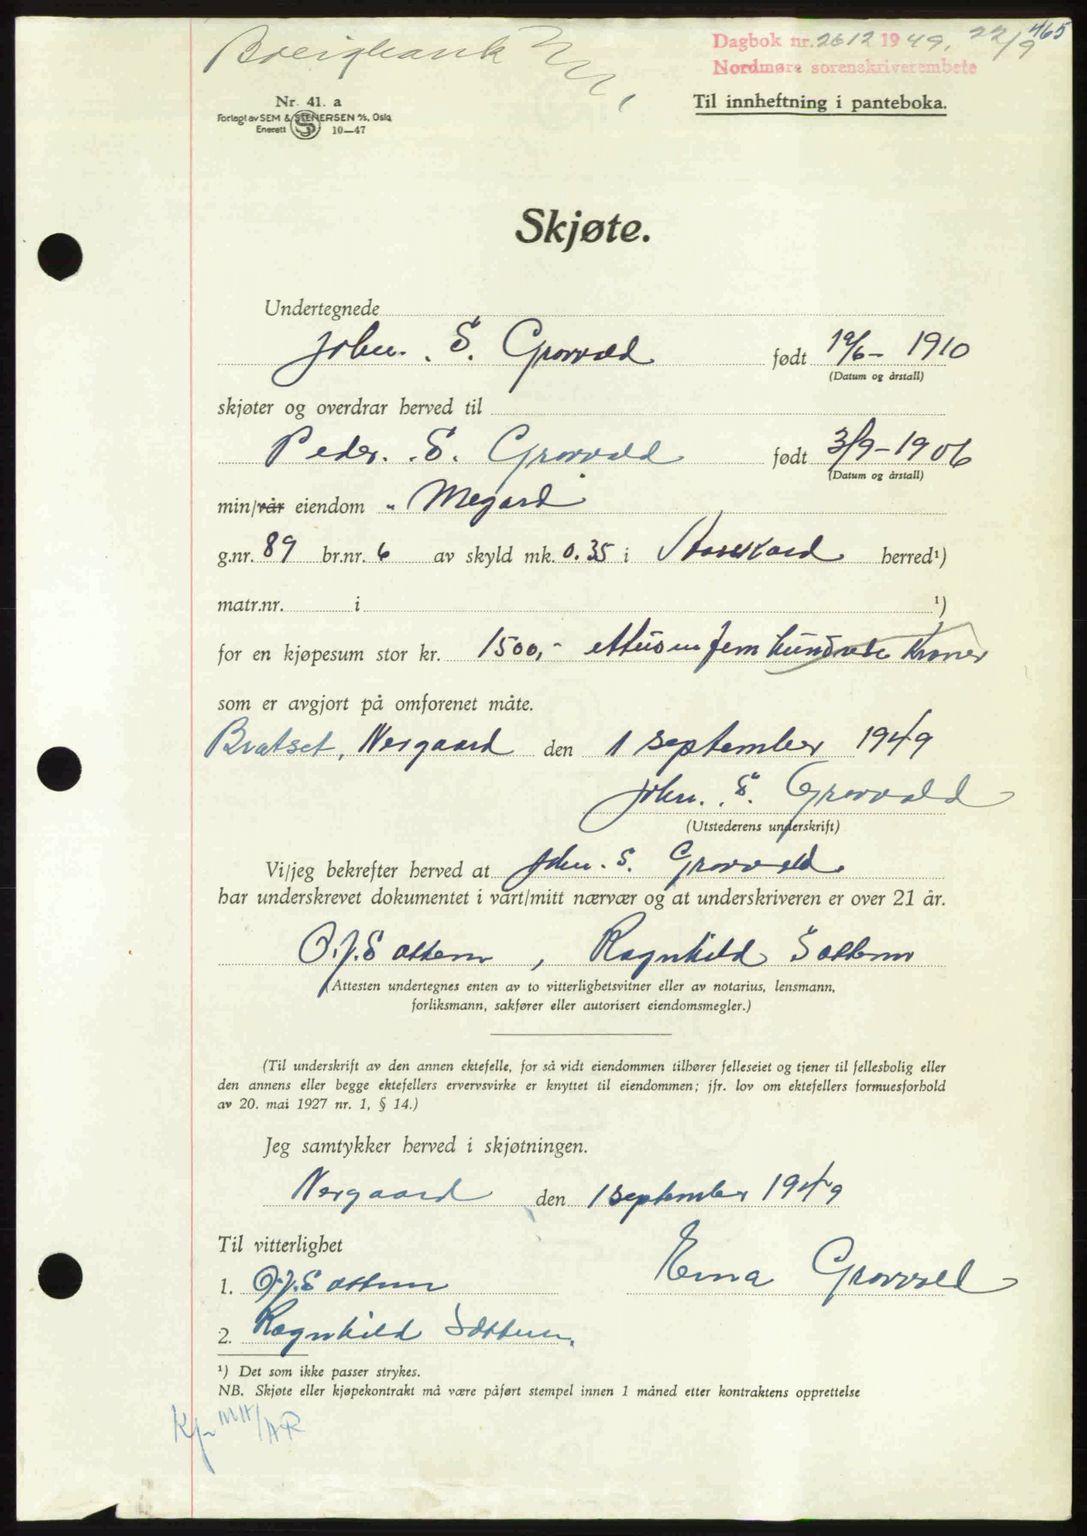 465
Dagbok nr. 2612 1949, 22/9
Nordmøre sorenskriverembete
Nr. 41. a
Til innheftning i panteboka.
Forlagt av SEM & STENERSEN A/S, Oslo
Enerett 10—47
Skjøte.
Undertegnede
John. S. Grovvald født 19/6 - 1910
(Datum og årstall)
skjøter og overdrar herved til
Peder. S. Grovvald født 3/9 - 1906
(Datum og årstall)
min/vår eiendom „ Megard
g.nr. 89 br.nr. 6 av skyld mk. 0.35 i herred¹)
matr.nr. i ¹)
for en kjøpesum stor kr. 1500,- ettusenfem hundrede Kroner
som er avgjort på omforenet måte.
Bratset, Nergaard den 1 september 1949
John. S. Grovvald
(Utstederens underskrift)
Vi/jeg bekrefter herved at John. S. Grovvald
har underskrevet dokumentet i vårt/mitt nærvær og at underskriveren er over 21 år.
O.J. Sættem, Ragnhild Sættem
(Attesten undertegnes enten av to vitterlighetsvitner eller av notarius, lensmann,
forliksmann, sakfører eller autorisert eiendomsmegler.)
(Til underskrift av den annen ektefelle, for så vidt eiendommen tilhører felleseiet og tjener til fellesbolig eller
den annens eller begge ektefellers ervervsvirke er knyttet til eiendommen; jfr. lov om ektefellers formuesforhold
av 20. mai 1927 nr. 1, § 14.)
Jeg samtykker herved i skjøtningen.
Nergaard den 1 september 1949
Til vitterlighet
Erna Grovvald
1. O.J. Sættem
2. Ragnhild Sættem.
¹) Det som ikke passer strykes.
NB. Skjøte eller kjøpekontrakt må være påført stempel innen 1 måned etter kontraktens opprettelse
MH/AR